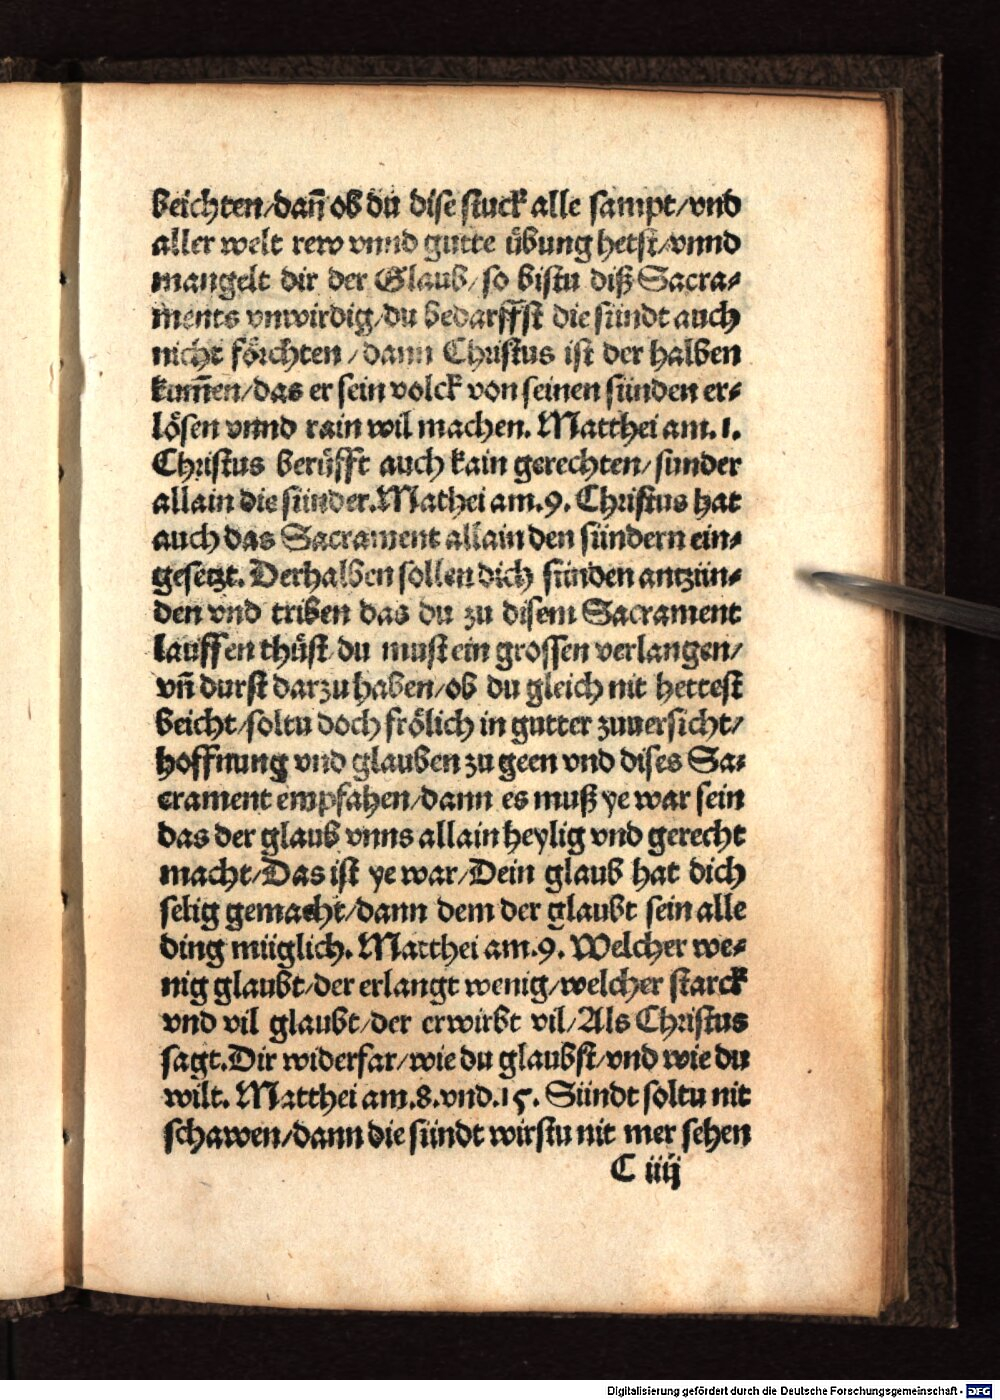 beichten/dañ ob du dise stuck alle sampt/vnd
aller welt rew vnnd gutte übung hetst/vnnd
mangelt dir der Glaub/so bistu diß Sacra-
ments vnwirdig/du bedarffst die sündt auch
nicht förchten/dann Christus ist der halben
kum̃en/das er sein volck von seinen sünden er-
lösen vnnd rain wil machen. Matthei am. 1.
Christus berüfft auch kain gerechten/sunder
allain die sünder. Mathei am. 9. Christus hat
auch das Sacrament allain den sündern ein-
gesetzt. Derhalben sollen dich sünden antzün-
den vnd triben das du zu disem Sacrament
lauffen thüst/du must ein grossen verlangen/
vñ durst darzu haben/ob du gleich nit hettest
beicht/soltu doch frölich in gutter zuuersicht/
hoffnung vnd glauben zu geen vnd dises Sa-
crament empfahen/dann es muß ye war sein
das der glaub vnns allain heylig vnd gerecht
macht/Das ist ye war/Dein glaub hat dich
selig gemacht/dann dem der glaubt sein alle
ding müglich. Matthei am. 9. Welcher we-
nig glaubt/der erlangt wenig/welcher starck
vnd vil glaubt/der erwirbt vil/Als Christus
sagt. Dir widerfar/wie du glaubst/vnd wie du
wilt. Matthei am. 8. vnd. 15. Sündt soltu nit
schawen/dann die sündt wirstu nit mer sehen
C iiij
Digitalisierung gefördert durch die Deutsche Forschungsgemeinschaft - DFG